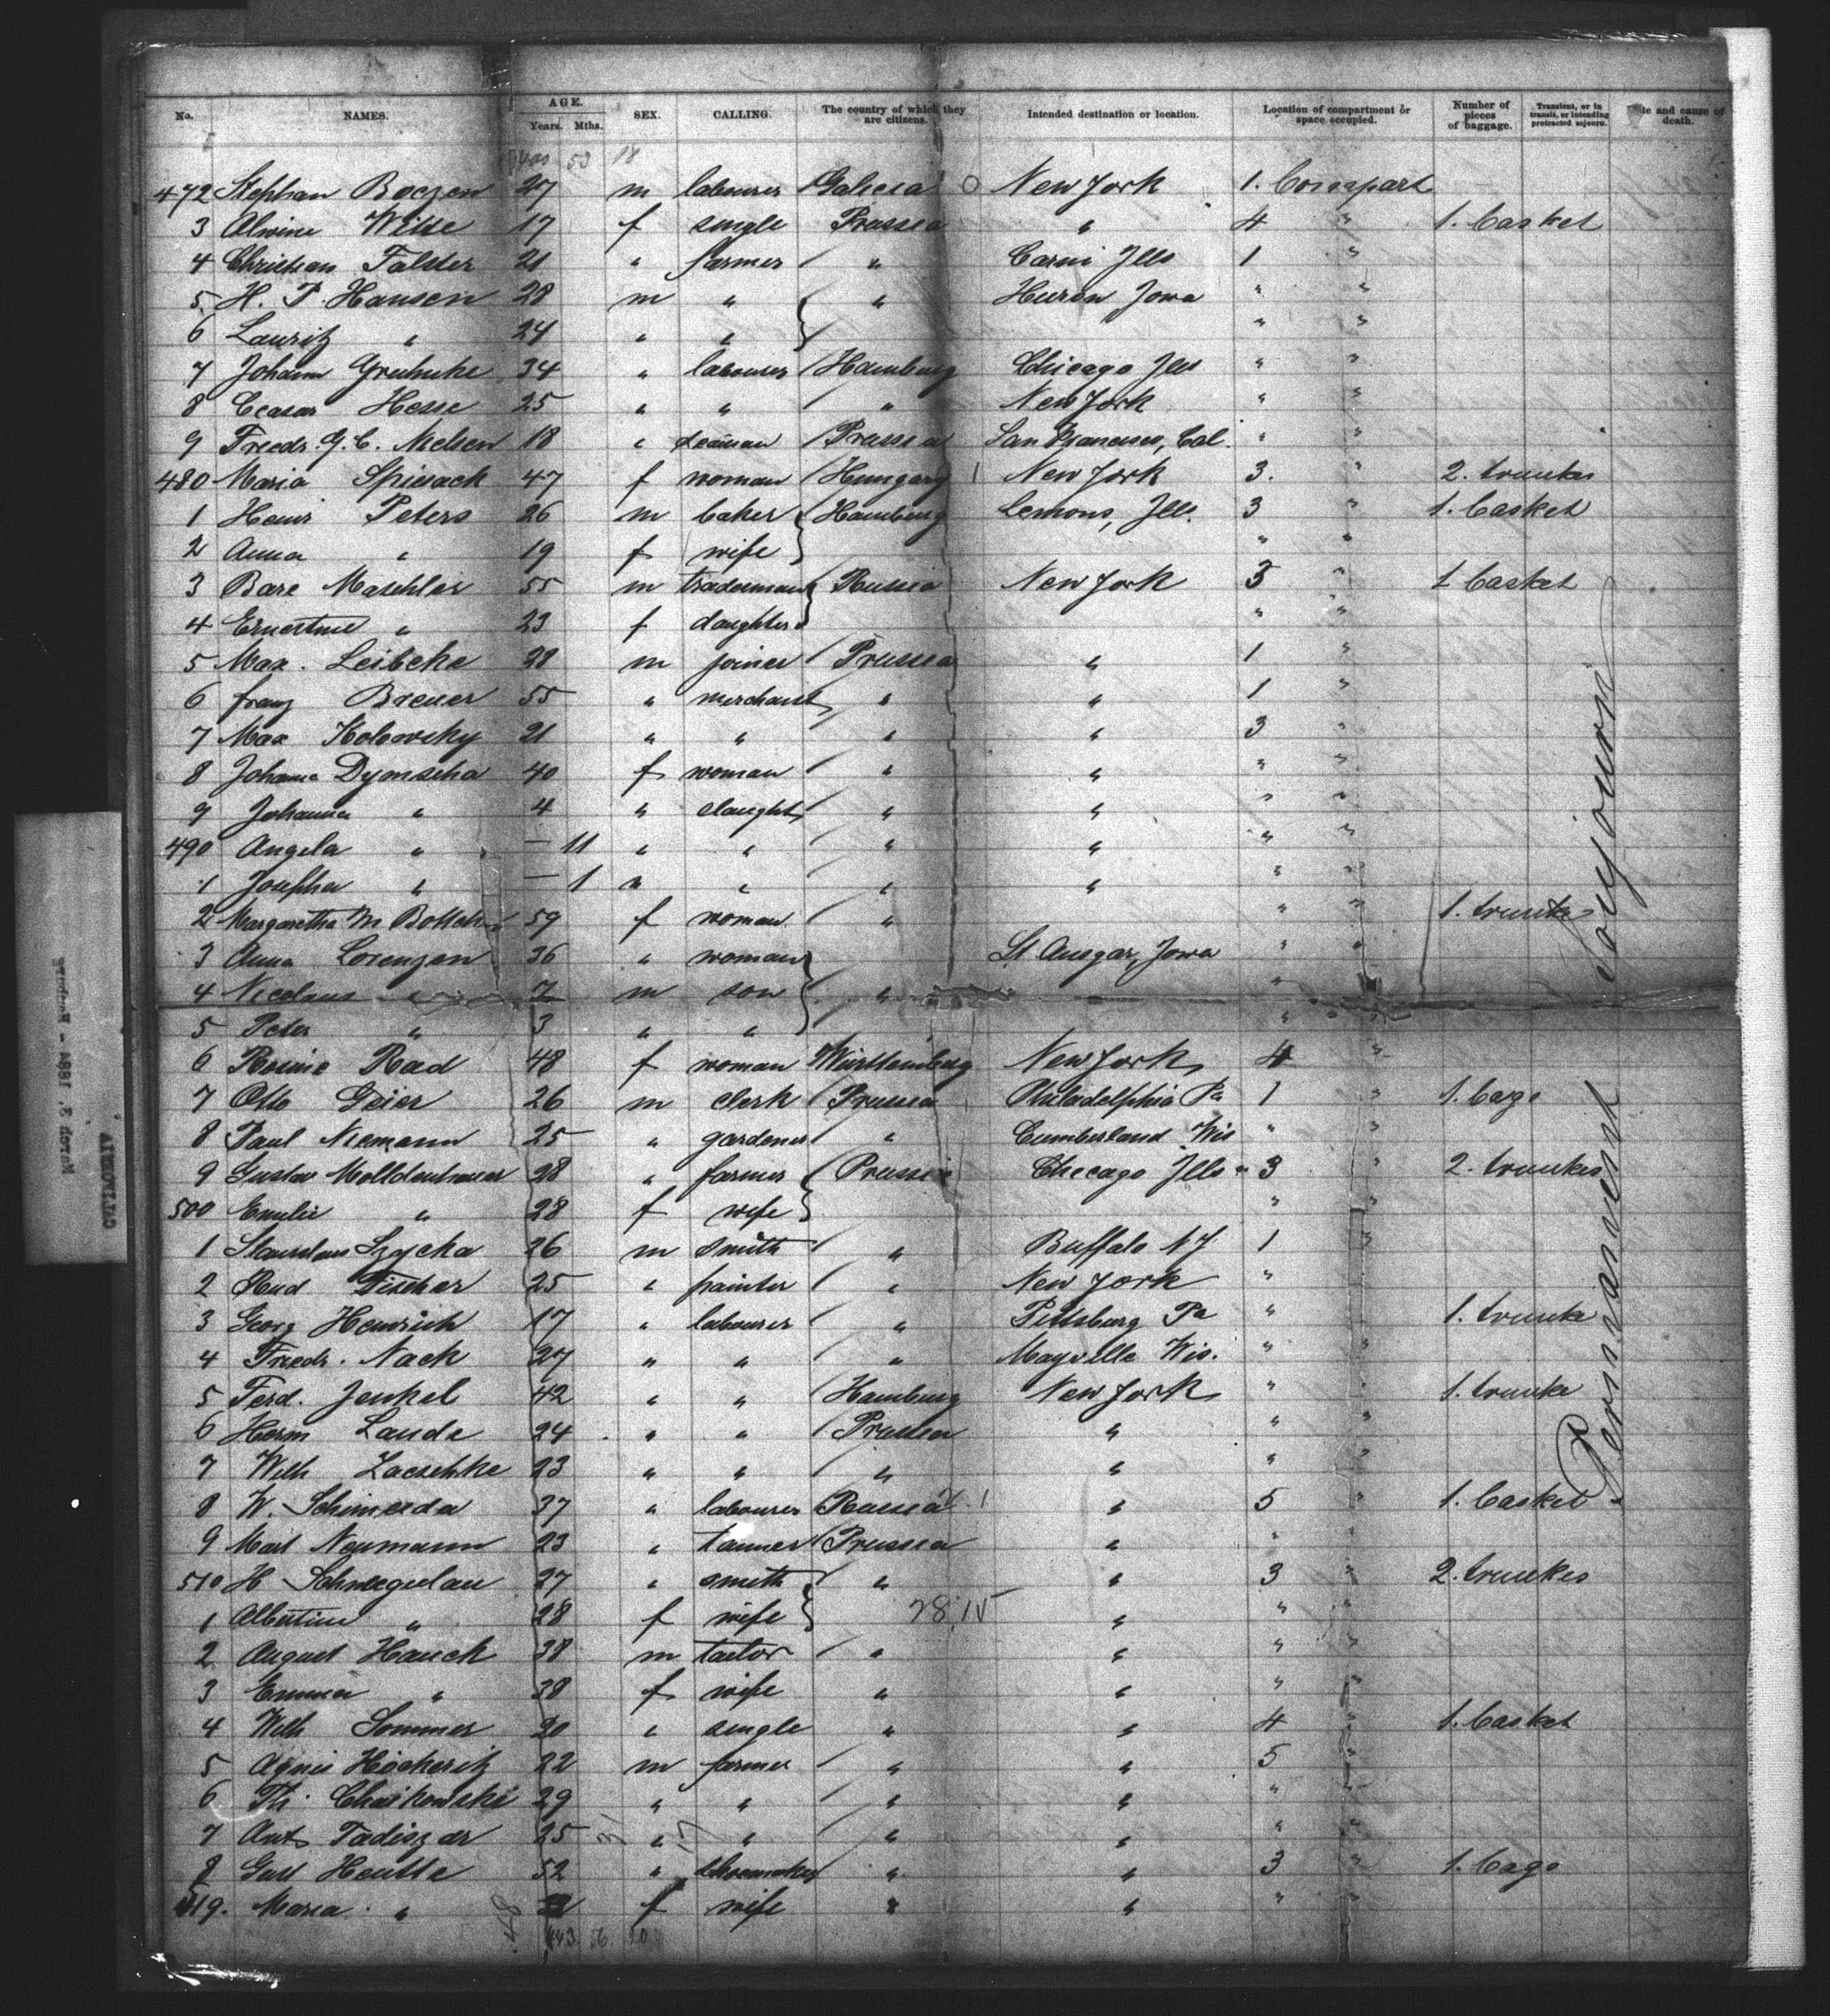 No. NAMES. AGE. Years. Mths. SEX. CALLING. The country of which they are citizens. Intended destination or location. Location of compartment or space occupied. Number of pieces of baggage. Transient, or in transit, or intending protracted sojourn. Date and cause of death.
472 Stephan Boczen 27 m labourer Galicia 0 New York 1. Compart
3 Alwine Witte 17 f single Prussia " 4 " 1. Casket
4 Christian Falster 21 " farmer " Carmi Jlls 1 "
5 H. P. Hansen 28 m " " Huron Jowa " "
6 Lauritz " 24 " " " "
7 Johann Gruhnke 34 " labourer Hamburg Chicago Jlls " "
8 Ceasar Hesse 25 " " " New York " "
9 Friedr. G. C. Nielsen 18 " seaman Prussia San Francisco, Cal. " "
480 Maria Spisack 47 f woman Hungary 1 New York 3. " 2. trunkes
1 Heinr Peters 26 m baker Hamburg Lemons, Jlls. 3 " 1. Casket
2 Anna " 19 f wife " "
3 Bare Maschler 55 m tradesman Russia New York 3 " 1 Casket
4 Ernestine " 23 f daughter " "
5 Max. Leibcke 28 m joiner Prussia " 1 "
6 Franz Breuer 55 " merchant " " 1 "
7 Max Kobovsky 21 " " " " 3 "
8 Johanna Dymscha 40 f woman " " " "
9 Johanna " 4 " daught " " " "
490 Angela " — 11 " " " " " "
1 Josepha " — 1 " " " " " "
2 Margaretha M Bottch 59 f woman " " " 1. trunke
3 Anna Lorenzen 36 " woman St Ansgar, Jowa " "
4 Nicolaus " 7 m son " "
5 Peter " 3 " " "
6 Rosine Rad 48 f woman Württemberg New York 4 "
7 Otto Geier 26 m clerk Prussia Philadelphia Pa 1 " 1. Cage
8 Paul Niemann 25 " gardener " Cumberland Wis " "
9 Gustav Molldenhauer 28 " farmer Prussia Chicago Jlls 3 " 2. trunkes
500 Emilie " 28 f wife " "
1 Stanislaus Szycka 26 m smith " Buffalo NY 1 "
2 Rud Fischer 25 " painter " New York "
3 Georg Heinrich 17 " labourer " Pittsburg Pa " 1. trunke
4 Friedr. Nack 27 " " " Mayville Wis. " "
5 Ferd. Jenkel 42 " " Hamburg New York " " 1. trunke
6 Herm Lande 24 " " Prussia " " "
7 Wilh Zaeschke 23 " " " " " "
8 W. Schimerda 37 " labourer Russia 1 " 5 " 1. Casket
9 Mart Neumann 23 " tanner Prussia " " "
510 H Schnegulau 27 " smith " " 3 " 2. trunkes
1 Albertine " 28 f wife " " "
2 August Hauck 38 m tailor " " " "
3 Emma " 38 f wife " " " "
4 Wilh Sommer 20 " single " " 4 " 1. Casket
5 Agnes Höckeritz 22 m farmer " " 5 "
6 Th. Chaikowski 29 " " " " " "
7 Ant Tadiszar 25 " " " " " "
8 Gust Heutte 52 " shoemaker " " 3 " 1. Cage
519. Maria " f wife " " " "
Permanent Sojourn
CALIFORNIA
March 3, 1881